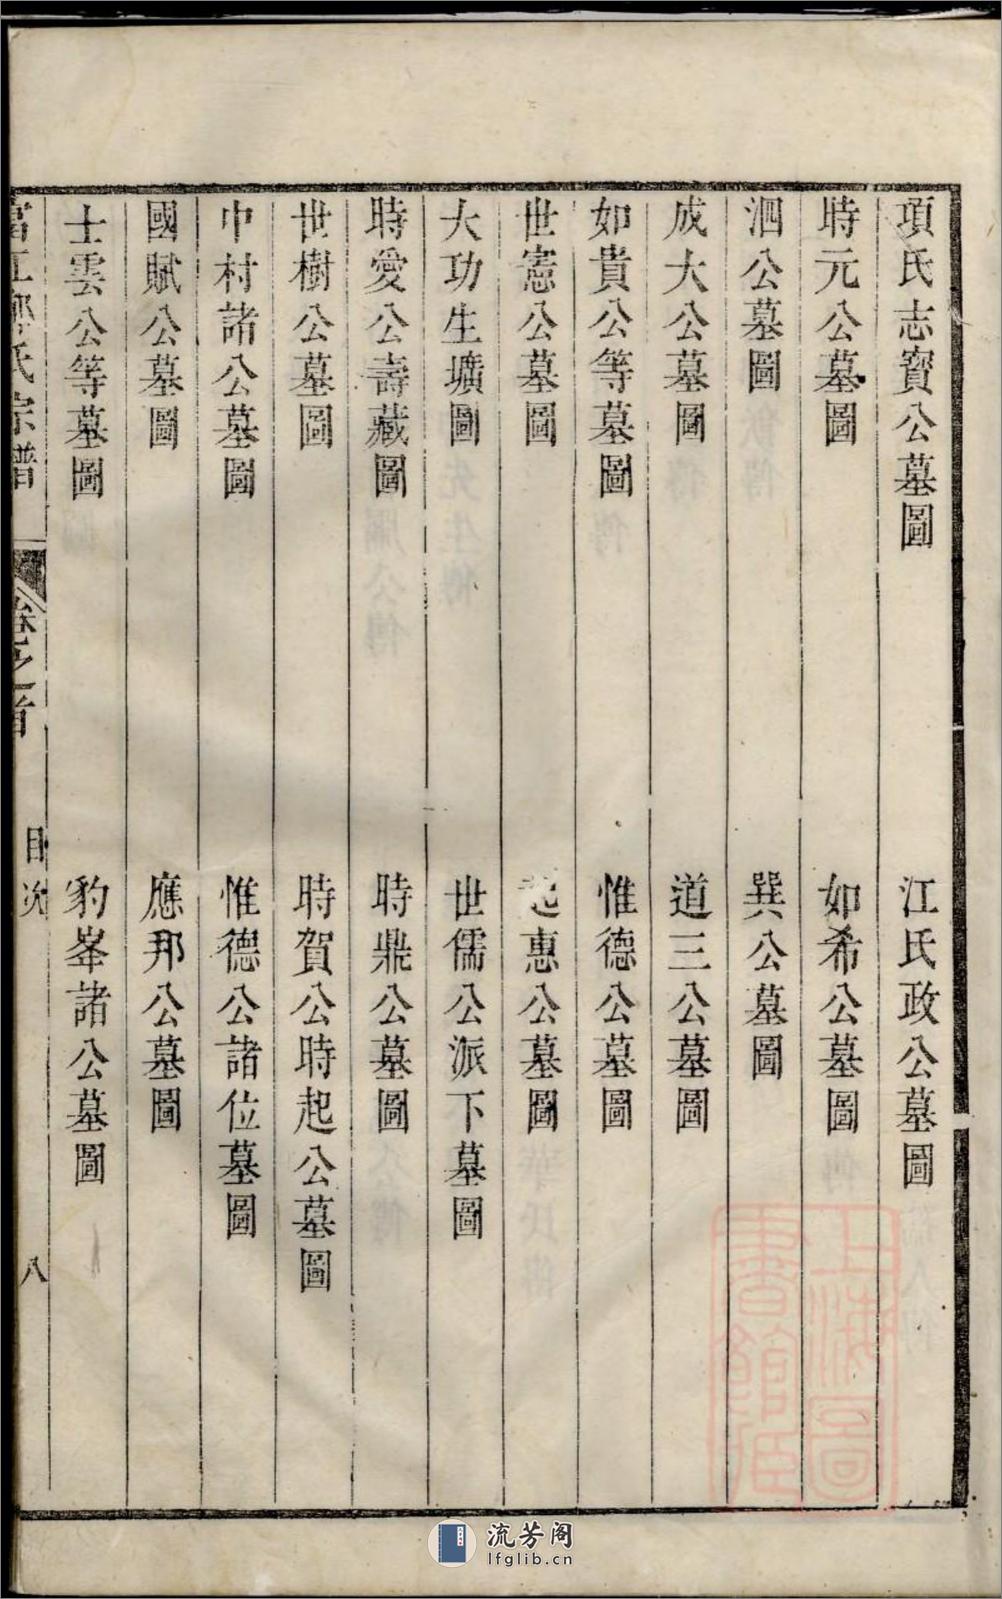 項氏志寶公墓圖　江氏政公墓圖
時元公墓圖　如希公墓圖
泗公墓圖　巽公墓圖
成大公墓圖　道三公墓圖
如貴公等墓圖　惟德公墓圖
世憲公墓圖　惠公墓圖
大功生壙圖　世儒公派下墓圖
時愛公壽藏圖　時鼎公墓圖
世樹公墓圖　時賀公時起公墓圖
中村諸公墓圖　惟德公諸位墓圖
國賦公墓圖　應邦公墓圖
士雲公等墓圖　豹峯諸公墓圖
氏宗譜　卷之首　目次　八
上海圖書館藏
流芳阁
lfglib.cn